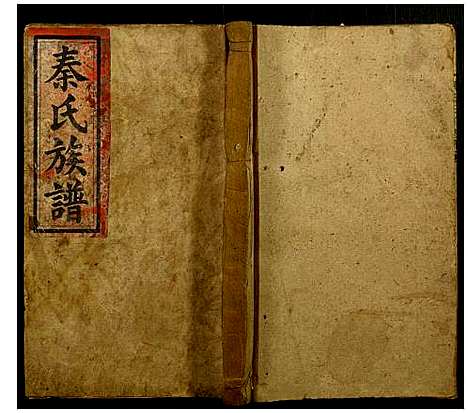 秦氏族譜